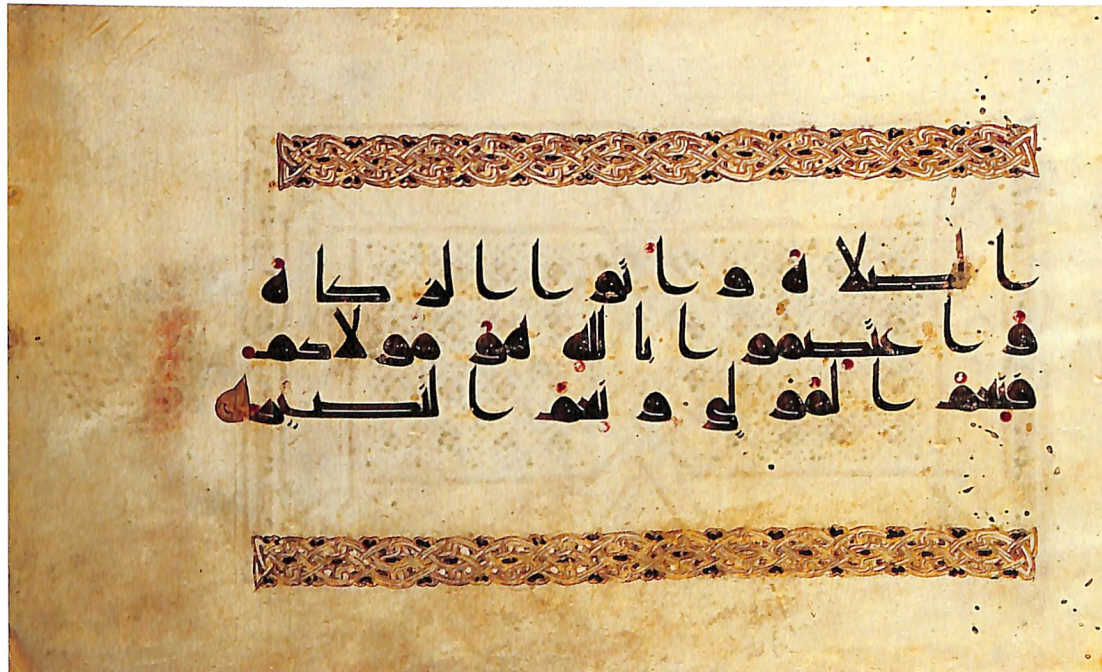 ا الصلاة وا توا ا لزكا ة
و ا عتصموا با لله هو مولاكم
فنعم ا لمو لى و نعم ا لنصير